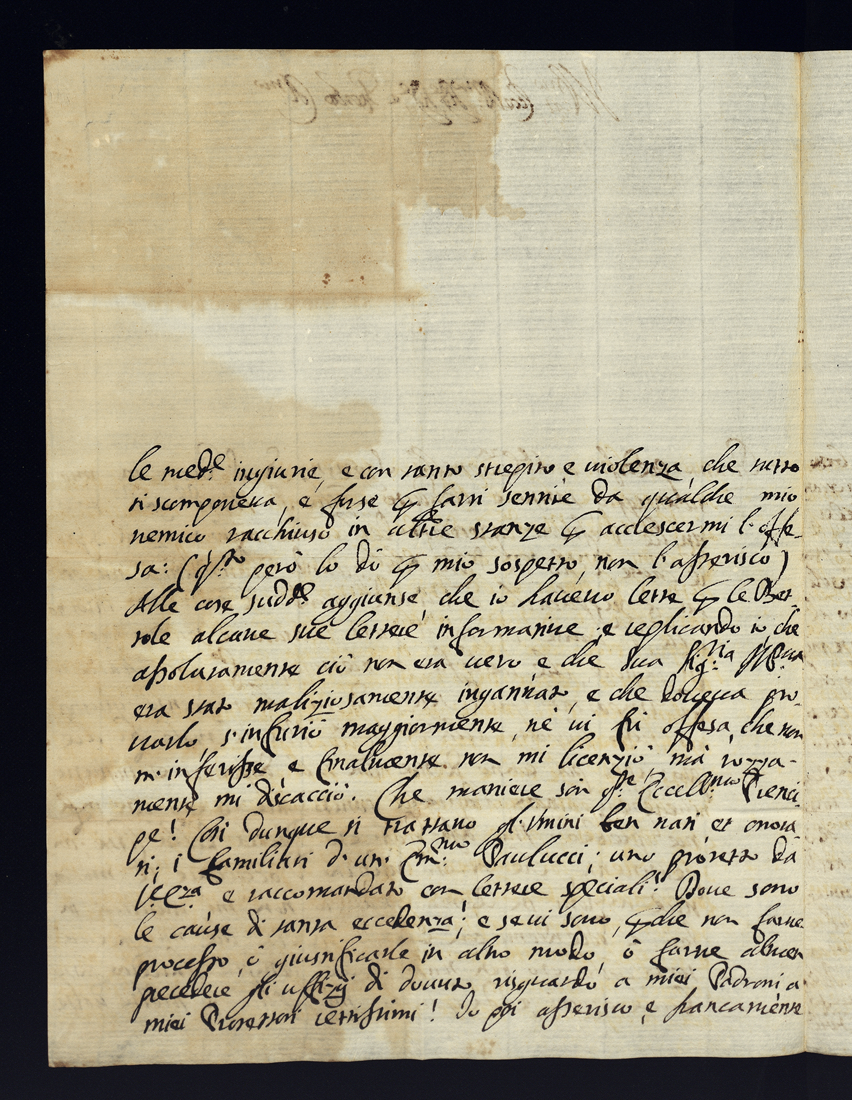 le med.e ingiurie, e con tanto strepito e uiolenza che tutto
si scomponeua, e forse per farsi sentire da qualche mio
nemico racchiuso in altre stanze per acclescermi l'offe-
sa: (q.sto però lo dò per mio sospetto, non l'asserisco)
Alle cose sudd.e aggiunse, che io haueuo lette per le Bet-
tole alcune sue lettere informatiue; e replicando io che
assolutamente ciò non era uero e che Sua Sig.ria Ill.ma
era stato maliziosamente ingannato, e che doueua pro-
uarlo, s'infuriò maggiormente, nè ui fù offesa che non
m'inferisse e finalmente non mi licenziò mà rozza-
mente mi discacciò. Che maniere son q.ste Eccell.mo Prenci-
pe! Così dunque si trattano gl'Vmini ben nati et onora
ti, i familiari d'un Em.mo Paulucci; uno protetto da
V.Ecc.za e raccomandato con lettere speciali! Doue sono
le cause di tanta eccedenza! e se ui sono, perche non farne
processo, ò giustificarle in altro modo, ò farne almen
precedere gli uffizij di douuto risguardo a miei Padroni a
miei Protettori uetissimi! Io poi asserisco, e francamente